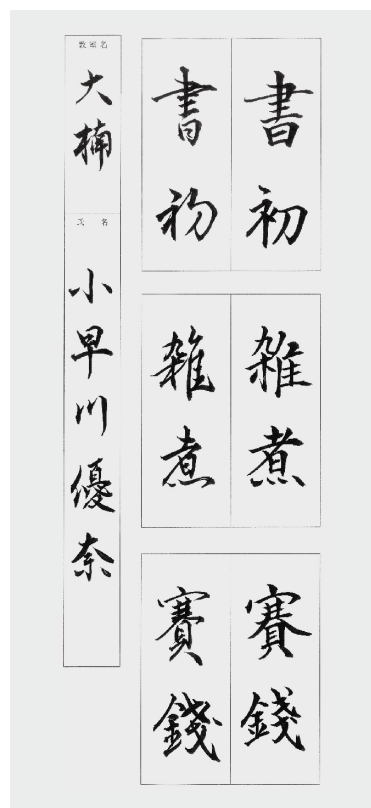 書初
書初
雑煮
雑煮
賽錢
賽錢
教室名
大楠
氏名
小早川優奈